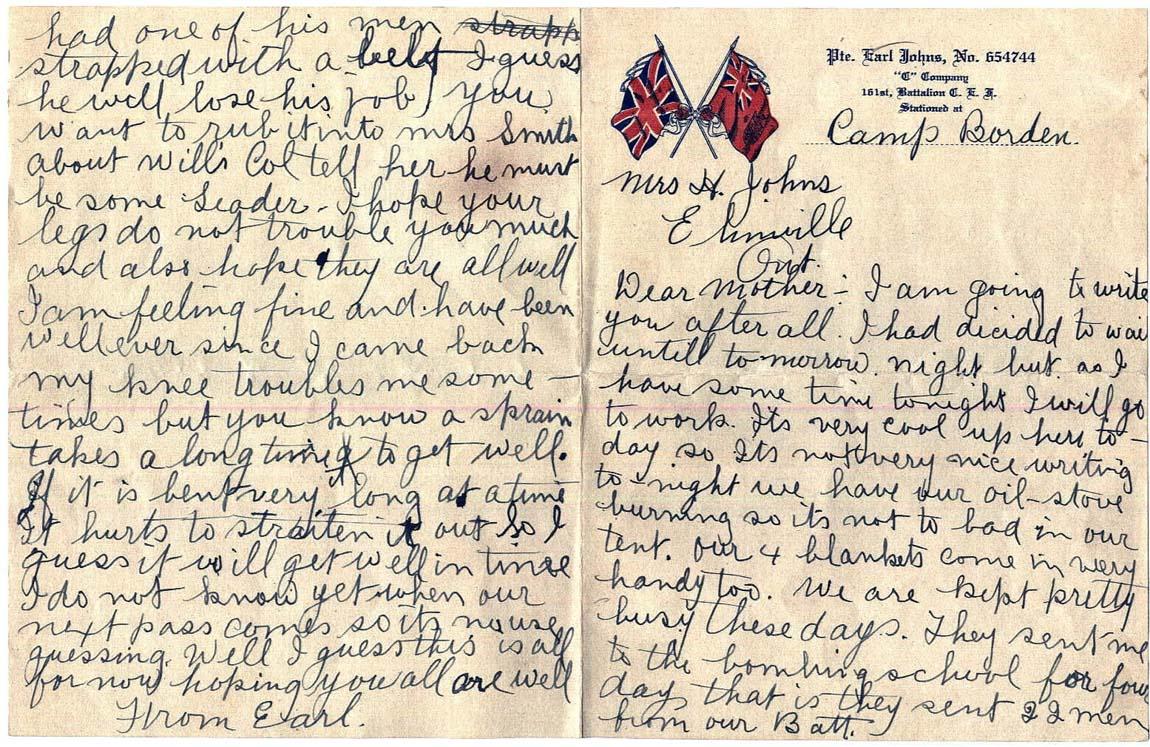 had one of his men strapp
strapped with a belt I guess
he will lose his job) you
want to rub it into mrs Smith
about Will's Col tell her he must
be some Leader - I hope your
legs do not trouble you much
and also hope they are all well
I am feeling fine and have been
well ever since I came back
my knee troubles me some-
times but you know a sprain
takes a long time to get well.
If it is bent very long at a time
It hurts to straiten it out So I
guess it will get well in time
I do not know yet when our
next pass comes so its no use
guessing. Well I guess this is all
for now hoping you all are well
From Earl.
Pte. Earl Johns, No. 654744
"C" Company
161st, Battalion C. E. F.
Stationed at
Camp Borden.
Mrs H. Johns
Elimville
Ont.
Dear Mother:- I am going to write
you after all. I had decided to wai
untill to-morrow night but as I
have some time tonight I will go
to work. Its very cool up here to-
day so Its not very nice writing
to-night we have our oil-stove
burning so its not to bad in our
tent. Our 4 blankets come in very
handy too. We are kept pretty
busy these days. They sent me
to the bombing school for four
days that is they sent 22 men
from our Batt.